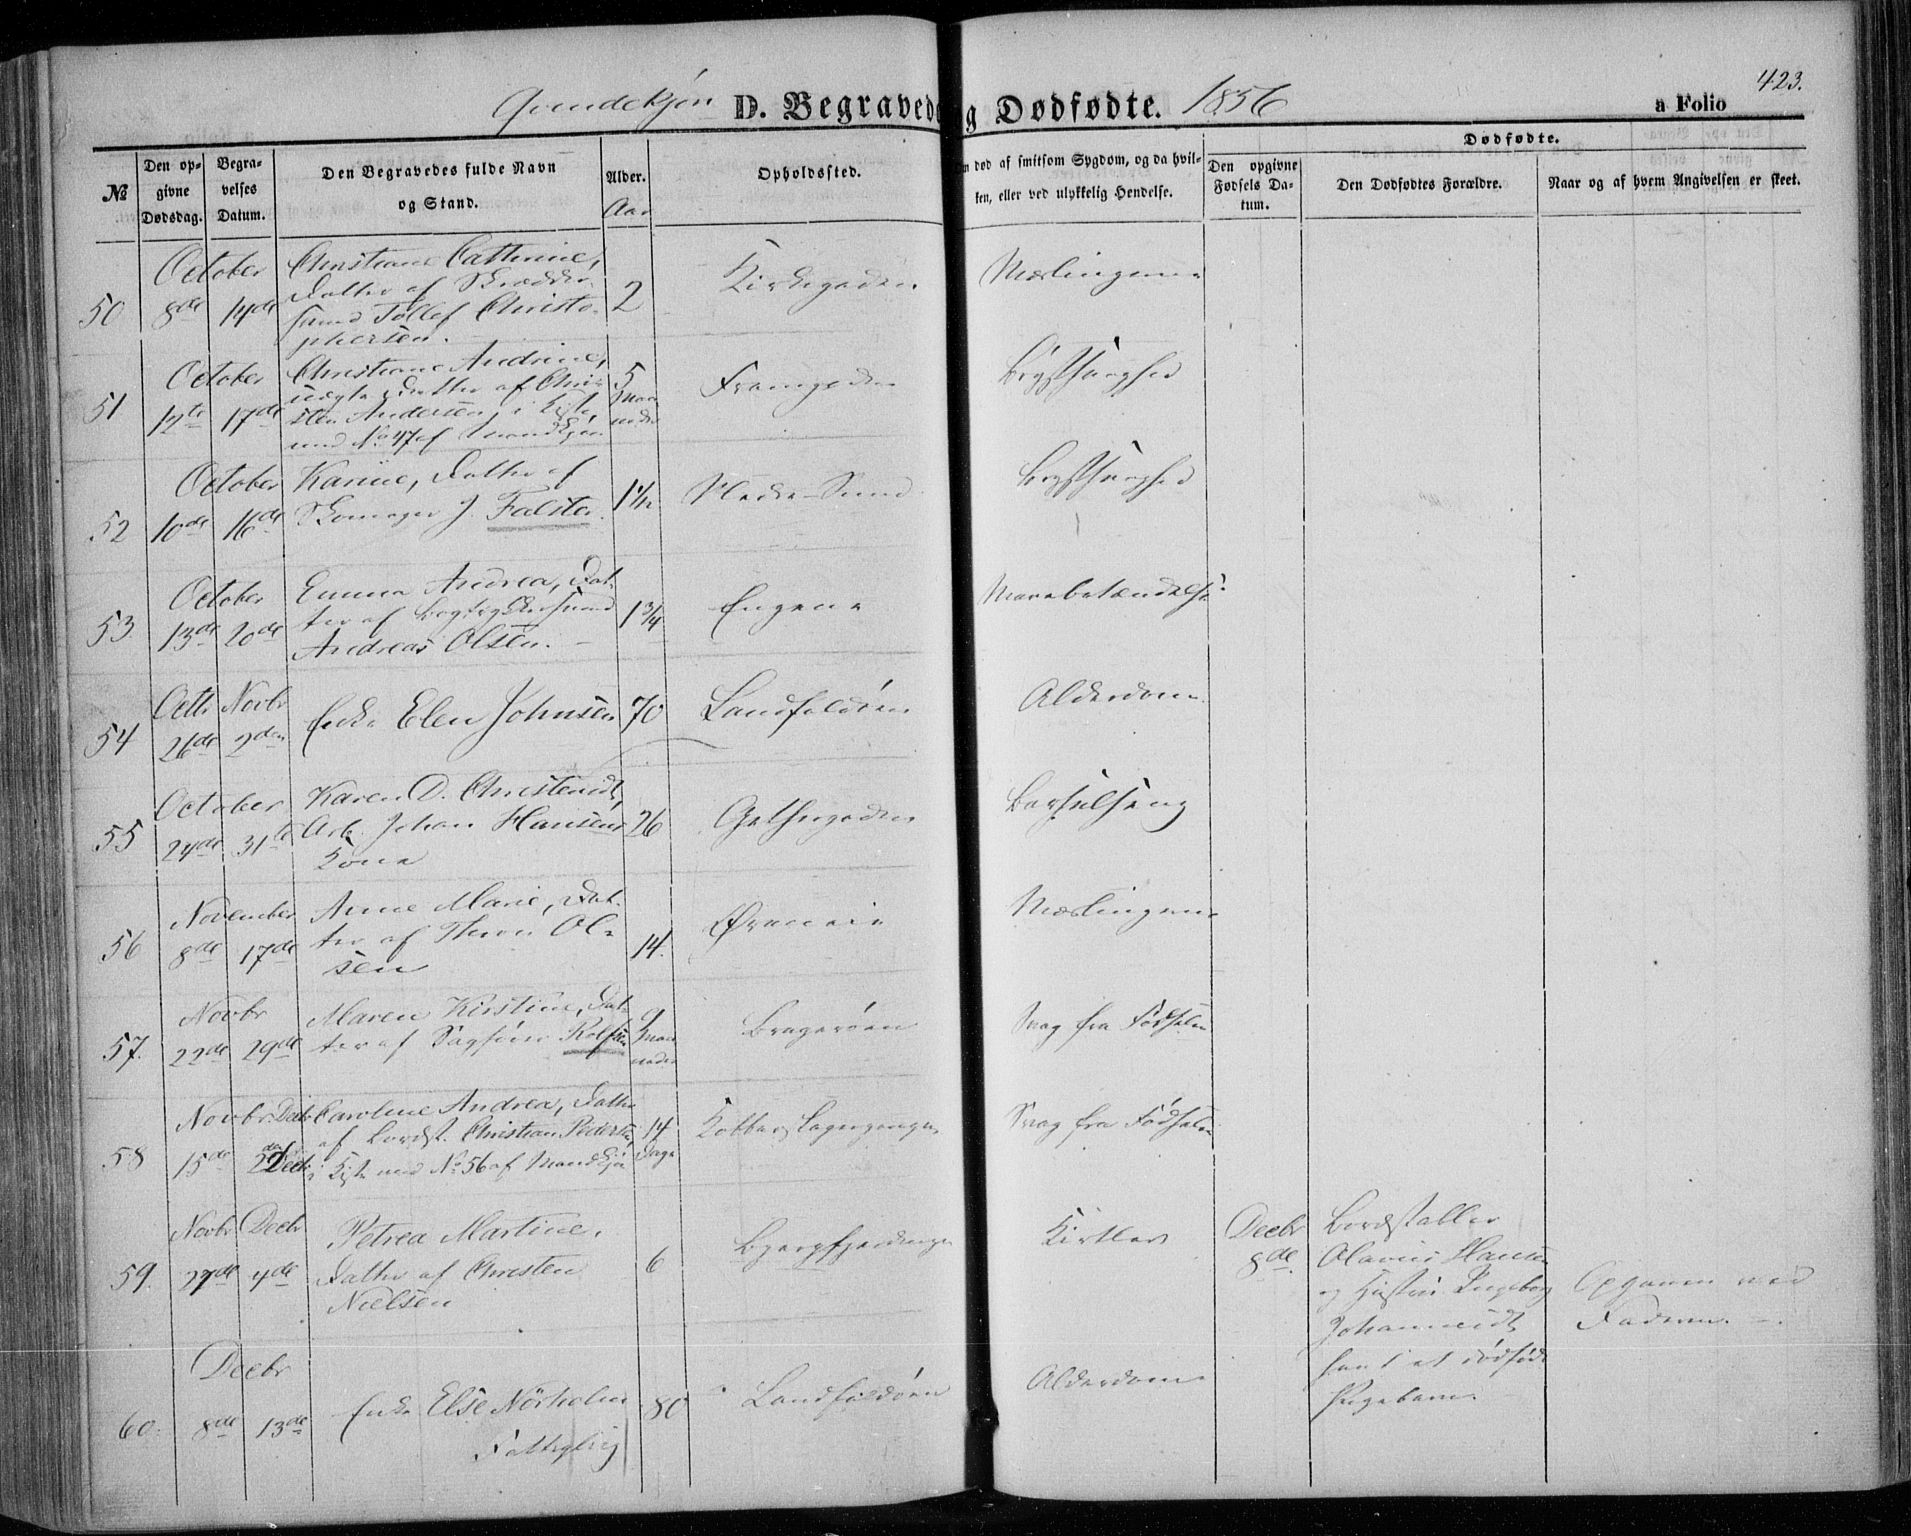 Qvindekjøn D. Begravede og Dødfødte. 1856 a Folio 423.
№
Den op-
givne
Dødsdag.
Begra-
velses
Datum.
Den Begravedes fulde Navn
og Stand.
Alder.
Aar
Opholdssted.
død af smitsom Sygdom, og da hvil-
ken, eller ved ulykkelig Hendelse.
Dødfødte.
Den opgivne
Fødsels Da-
tum.
Den Dødfødtes Forældre.
Naar og af hvem Angivelsen er skeet.
50
October
8de 14de
Christiane Cathrine,
Datter af Skrædder-
svend Tollef Christo-
phersen.
2
Kirkegaden
Mæslingerne
51
October
12te 17de
Christiane Andrine,
uægte Datter af Chri-
sten Andersen, i Kiste
med No 47 af Mandkjøn
5
Maa-
neder
Framgaden
Brystsvaghed
52
October
10de 16de
Karine, Datter af
Skomager J. Falster.
1 1/2
Nedre-Sund
Brystsvaghed
53
October
13de 20de
Emma Andrea, Dat-
ter af Bogtrykkersvend
Andreas Olsen.
1 3/4
Engene
Mavebetændelse
54
Octbr Novbr
26de 2den
Enke Elen Johnsen
70
Landfaldøen
Alderdom
55
October
24de 31te
Karen D. Christensdt,
Arb. Johan Hansens
Kone
26
Gethegaden
Barselseng
56
November
8de 17de
Anne Marie, Dat-
ter af Thron Ol-
sen
14.
Øreneie
Mæslingerne
57.
Novbr
22de 29de
Maren Kirstine, Dat-
ter af Sagfører Rolfsen
9
Maa-
neder
Bragerøen
Svag fra Fødselen
58
Novbr. Decbr
15de Decbr
Caroline Andrea, Datter
af Bordst. Christian Pedersen,
i Kiste med No 56 af Mandkjøn
14
Dage
Svag fra Fødselen
59.
Novbr Decbr
27de 4de
Petrea Martine,
Datter af Christen
Nielsen
6
Bjergfjerdingen
Kirtler
Decbr
8de.
Bordstabler
Olavus Hansen
og Hustru Ingeborg
Johannesdt
et dødfødt
Pigebarn.
Opgaven ved
Faderen.
60.
Decbr
8de 13de
Enke Else Nørholm
Fattiglem
80
Landfaldøen
Alderdom